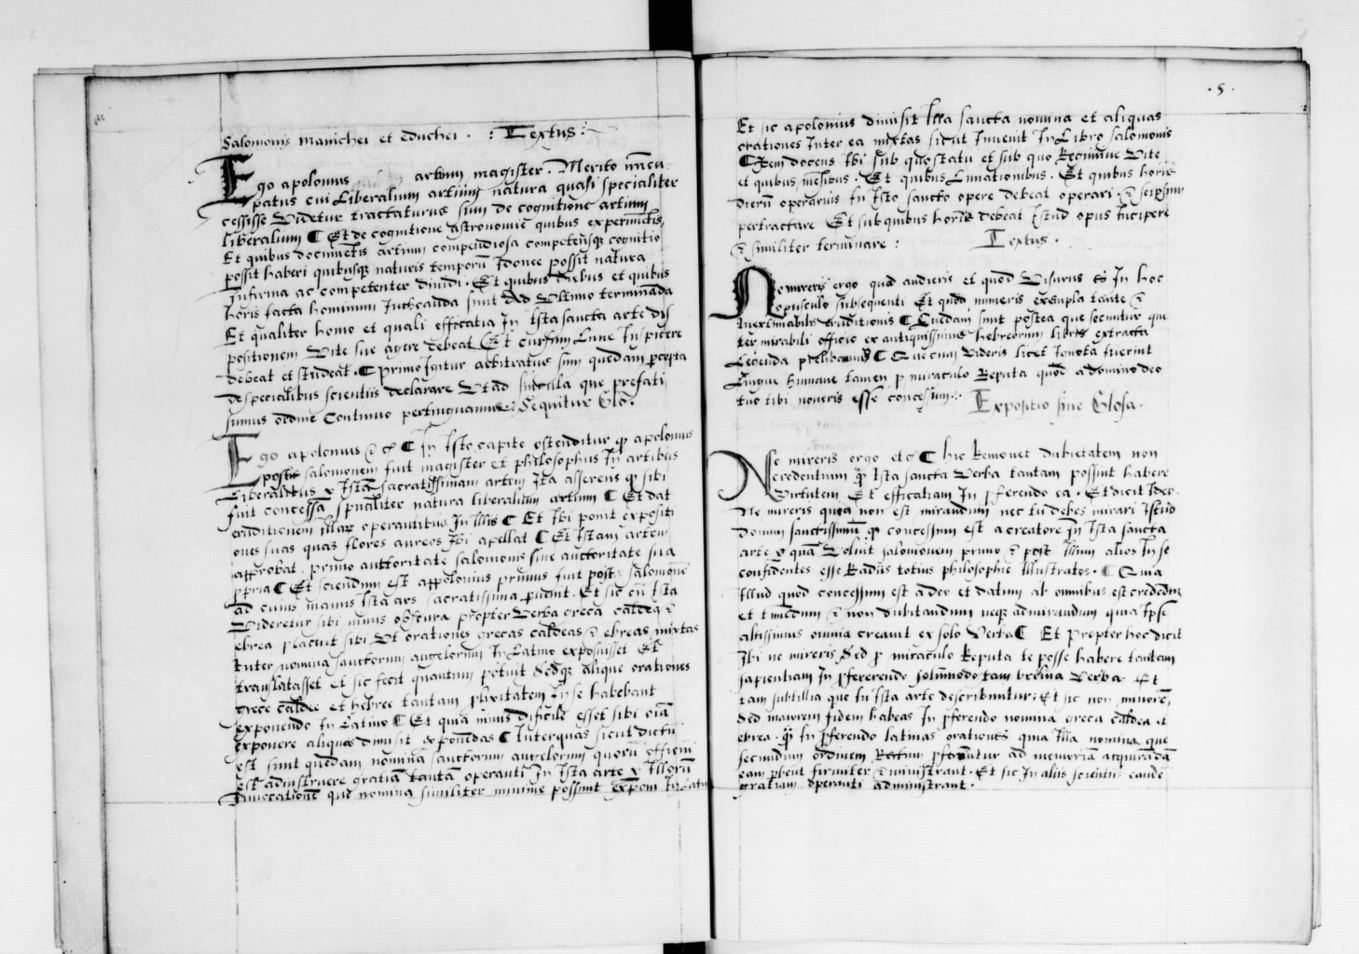 Salomonis manichei et Euchei . : Textus :
Ego apolonius artium magister . Merito nūcu
patus cui Liberalium artium natura quasi specialiter
cessisse Videtur tractaturus sum de cognitione artium
liberalium ¶ Et de cognitione Astronomie quibus experimētis,
Et quibus documētis artium compendiosa competensq cognitio
possit haberi quibusq naturis temporū Idonee possit natura
Infirma ac competenter diuidi . Et quibus diebus et quibus
horis facta hominum sint Ad Vltimo terminanda
Et qualiter homo et quali efficatia In Ista sancta arte dis
positionem Vite sue agere debeat Et cursum Lune Inspicere
debeat et studeat . ¶ primo Igitur arbitratus sum quedam pcepta
de specialibus scientiis declarare Vt ad singula que prefati
sumus ordine Continuo pertinguamus : Sequitur Glo .
Ego apolonius ¶ In Isto capite ostenditur q apolonius
post salomonem fuit magister et philosophus In artibus
Liberalibus Istā sacratissimam artem Ita asserens q sibi
fuit concessa specialiter natura liberalium artium ¶ Et dat
eruditionem operantibus In Illis ¶ Et Ibi ponit expositi
ones suas quas flores aureos Ibi apellat ¶ Et Istam artem
approbat . primo auttoritate salomonis siue auttoritate sua
ppria ¶ Et sciendum est appolonius primus fuit post salomonē
ad cuius manus Ista ars sacratissima puenit . Et sic cū Ista
Videretur sibi nimis obscura propter Verba greca caldeq
ebrea placuit sibi Vt orationes grecas caldeas ebreas mixtas
Inter nomina sanctorum angelorum In Latino exposuisset Et
translatasset et sic fecit quantum potuit Sedq alique orationes
grece caldee et hebree tantam plixitatem In se habebant
exponendo In Latino ¶ Et quia nimis dificile esset sibi oīa
exponere aliquas dimisit exponēdas ¶ Inter quas sicut dictū
est sunt quedam nomina sanctorum angelorum quorū officiū
est adinstruere gratiā tantā operanti In Ista arte Illorū
Inuocationē que nomina similiter minime possunt exponi In Latin
. 5 .
Et sic apolonius dimisit Illa sancta nomina et aliquas
orationes Inter ea mixtas sicut Inuenit In Libro salomonis
¶ Item docens Ibi sub quo statu et sub quo Regimine Vite
et quibus mēsibus . Et quibus Lunationibus . Et quibus horis
dierū operarius In Isto sancto opere debeat operari . seipsum
pertractare Et sub quibus horis debeat Istud opus Incipere
similiter terminare : Textus .
Ne mireris ergo quod audieris et quod Visurus es In hoc
opusculo subsequenti Et quod mireris exempla tante
Inextimabilis Eruditionis ¶ Quedam sunt postea que secuntur qui
ter mirabili officio ex antiquissimis hebreorum libris extracta
Legenda prelibamus ¶ Que cum Videris licet Ignota fuerint
Lingue humane tamen p miraculo Reputa quod a domino deo
tuo tibi noueris esse concessum : . Expositio siue Glosa .
Ne mireris ergo etc ¶ hic Remouet dubietatem non
credentium q Ista sancta Verba tantam possunt habere
Virtutem Et efficatiam In pferendo ea . Et dicit Ideo .
Ne mireris quia non est mirandum nec tu debes mirari Istud
donum sanctissimū q concessum est a creatore In Ista sancta
arte quā Voluit salomonem primo post Illum alios In se
confidentes esse Radiis totius philosophie Illustratos . ¶ Quia
Illud quod concessum est a deo et datum ab omnibus est credendum
et timendum non dubitandum neque admirandum quia Ipse
altissimus omnia creauit ex solo Verbo ¶ Et propter hoc dicit
Ibi ne mireris Sed p miraculo Reputa te posse habere tantam
sapientiam In pferendo solummodo tam breuia Verba . Et
tam subtilia que In Ista arte describuntur : Et sic non minorem,
Sed maiorem fidem habeas In pferendo nomina greca caldea et
ebrea . q In pferendo latinas orationes quia Illa nomina que
secundum ordinem Rectum pferuntur ad memoriā acquirādā
eam pbent firmiter ministrant . Et sic In aliis scientiis eandē
gratiam operanti administrant .